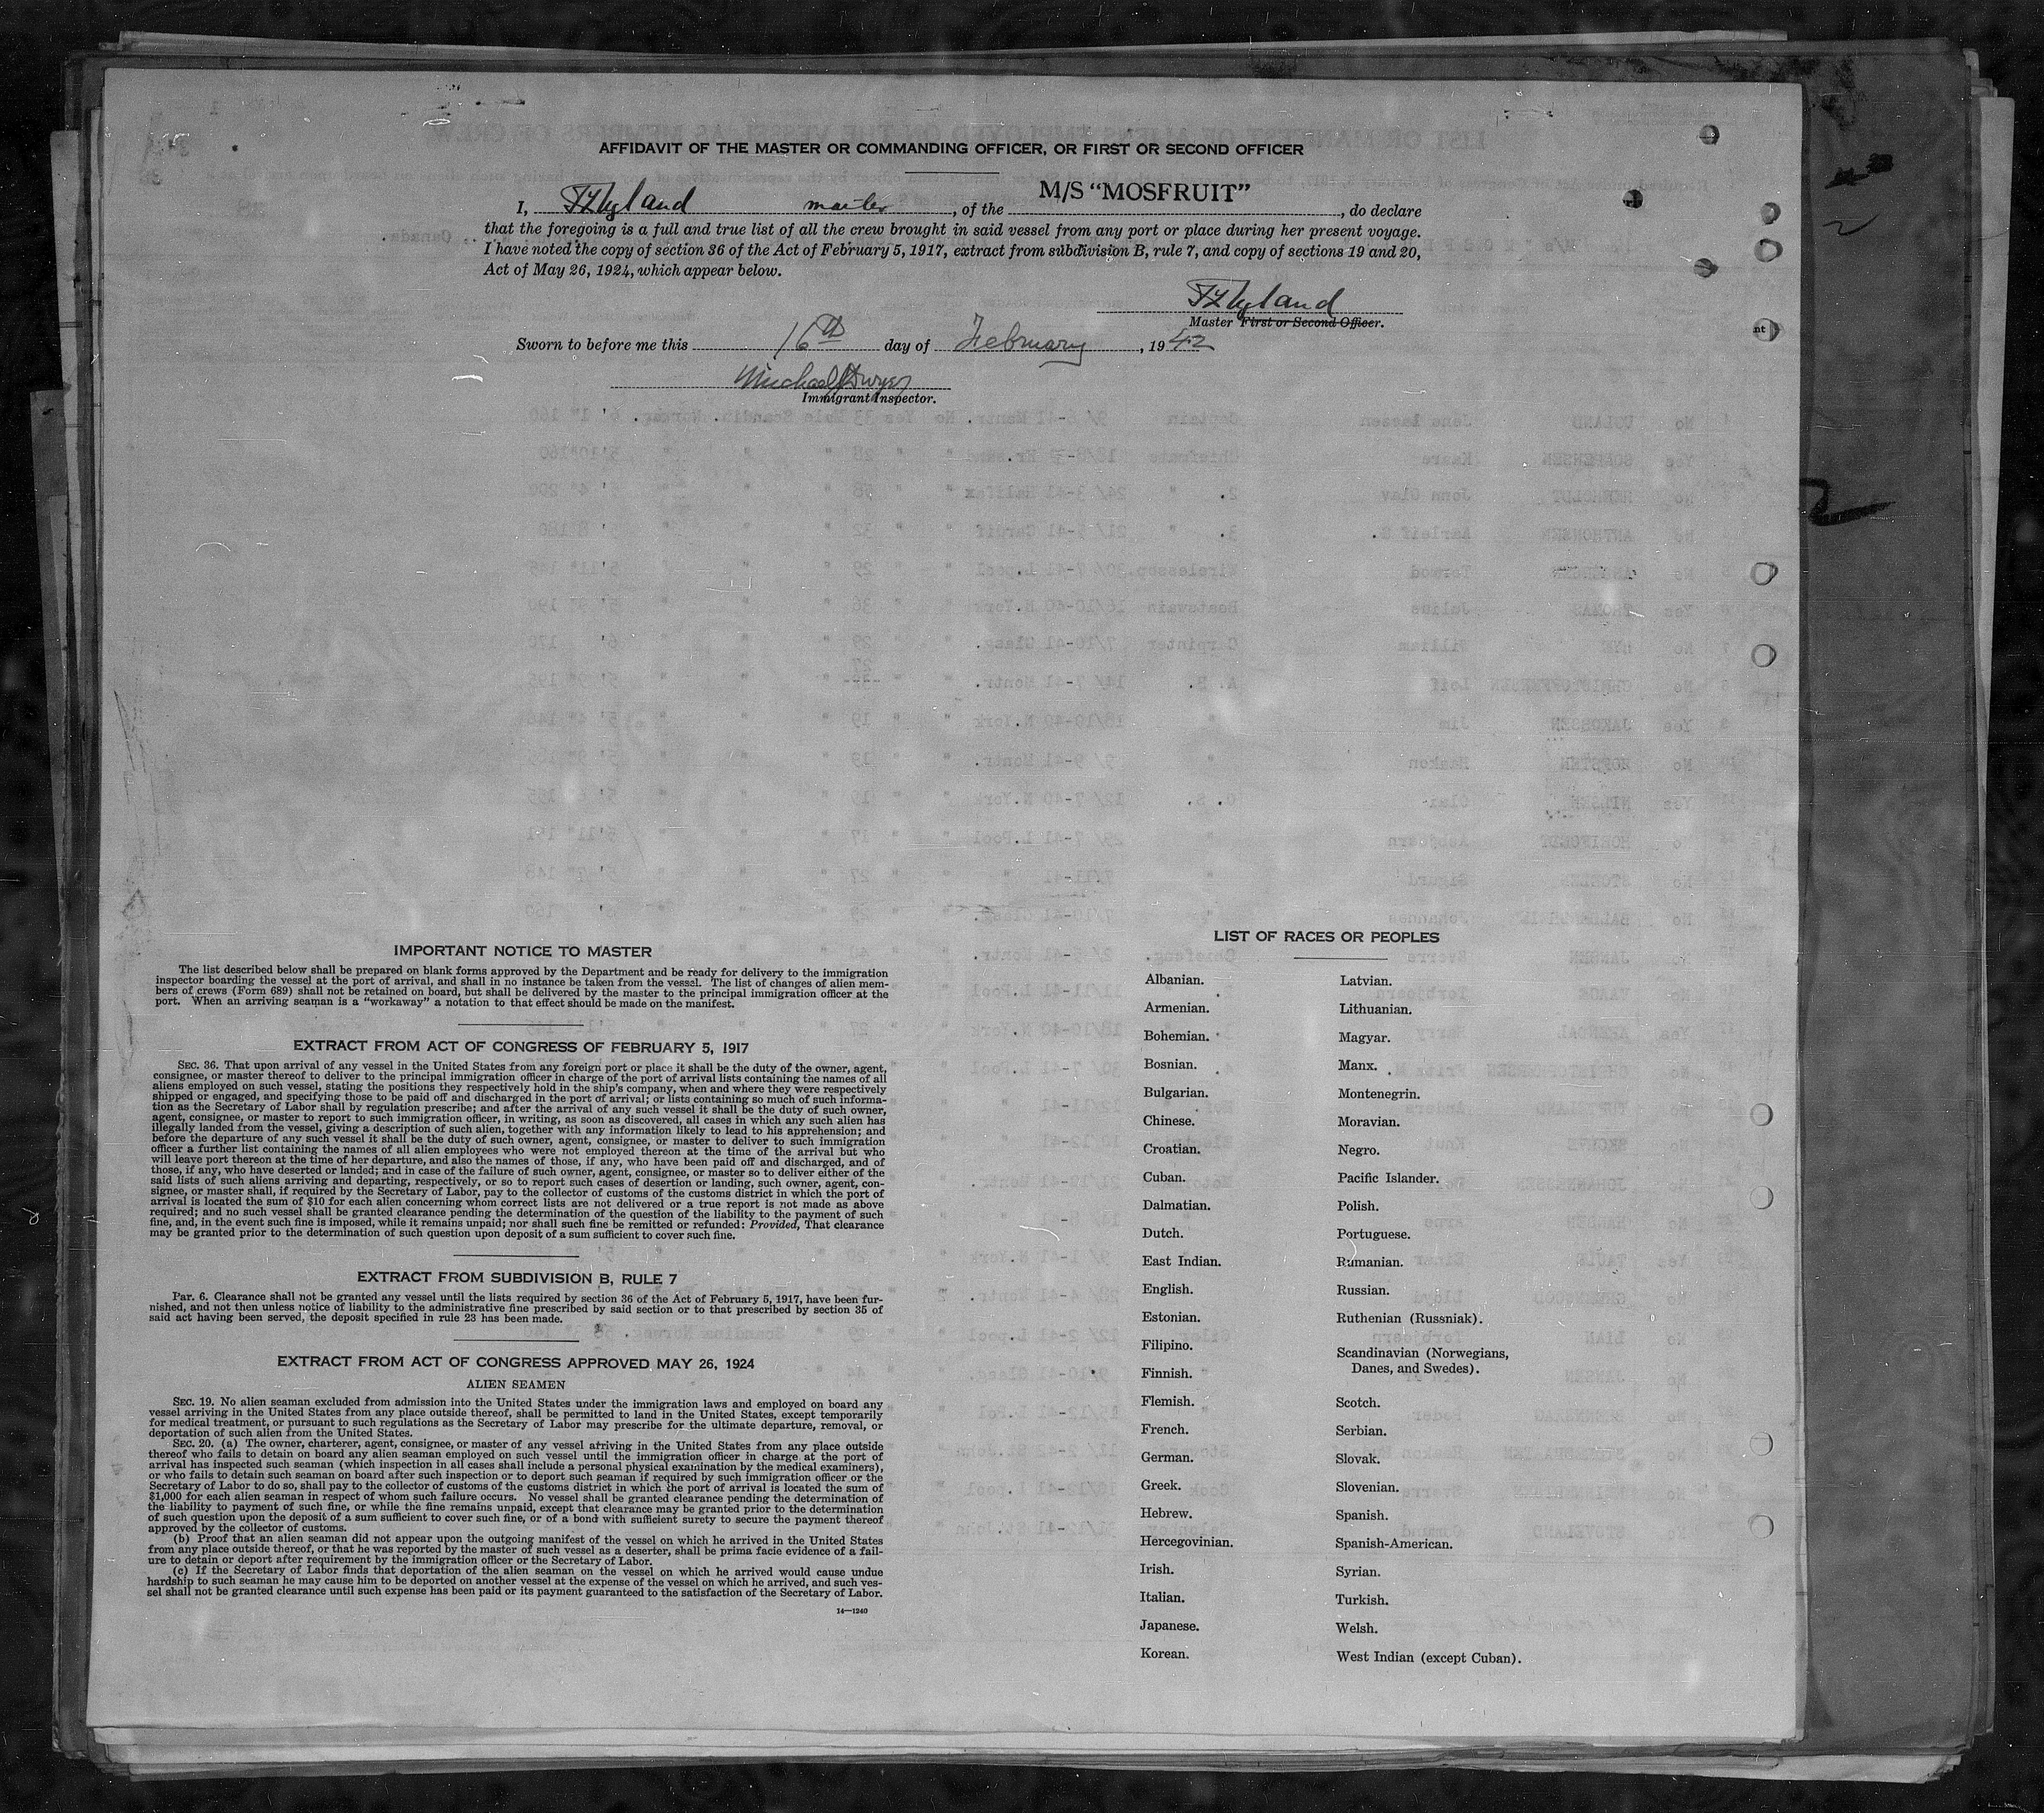 AFFIDAVIT OF THE MASTER OR COMMANDING OFFICER, OR FIRST OR SECOND OFFICER
I, master, of the M/S "MOSFRUIT", do declare
that the foregoing is a full and true list of all the crew brought in said vessel from any port or place during her present voyage.
I have noted the copy of section 36 of the Act of February 5, 1917, extract from subdivision B, rule 7, and copy of sections 19 and 20,
Act of May 26, 1924, which appear below.
Master First or Second Officer.
Sworn to before me this 16th day of February, 1942
Michael Dwyer
Immigrant Inspector.
IMPORTANT NOTICE TO MASTER
The list described below shall be prepared on blank forms approved by the Department and be ready for delivery to the immigration
inspector boarding the vessel at the port of arrival, and shall in no instance be taken from the vessel. The list of changes of alien mem-
bers of crews (Form 689) shall not be retained on board, but shall be delivered by the master to the principal immigration officer at the
port. When an arriving seaman is a "workaway" a notation to that effect should be made on the manifest.
EXTRACT FROM ACT OF CONGRESS OF FEBRUARY 5, 1917
SEC. 36. That upon arrival of any vessel in the United States from any foreign port or place it shall be the duty of the owner, agent,
consignee, or master thereof to deliver to the principal immigration officer in charge of the port of arrival lists containing the names of all
aliens employed on such vessel, stating the positions they respectively hold in the ship's company, when and where they were respectively
shipped or engaged, and specifying those to be paid off and discharged in the port of arrival; or lists containing so much of such informa-
tion as the Secretary of Labor shall by regulation prescribe; and after the arrival of any such vessel it shall be the duty of such owner,
agent, consignee, or master to report to such immigration officer, in writing, as soon as discovered, all cases in which any such alien has
illegally landed from the vessel, giving a description of such alien, together with any information likely to lead to his apprehension; and
before the departure of any such vessel it shall be the duty of such owner, agent, consignee, or master to deliver to such immigration
officer a further list containing the names of all alien employees who were not employed thereon at the time of the arrival but who
will leave port thereon at the time of her departure, and also the names of those, if any, who have been paid off and discharged, and of
those, if any, who have deserted or landed; and in case of the failure of such owner, agent, consignee, or master so to deliver either of the
said lists of such aliens arriving and departing, respectively, or so to report such cases of desertion or landing, such owner, agent, con-
signee, or master shall, if required by the Secretary of Labor, pay to the collector of customs of the customs district in which the port of
arrival is located the sum of $10 for each alien concerning whom correct lists are not delivered or a true report is not made as above
required; and no such vessel shall be granted clearance pending the determination of the question of the liability to the payment of such
fine, and, in the event such fine is imposed, while it remains unpaid; nor shall such fine be remitted or refunded: Provided, That clearance
may be granted prior to the determination of such question upon deposit of a sum sufficient to cover such fine.
EXTRACT FROM SUBDIVISION B, RULE 7
PAR. 6. Clearance shall not be granted any vessel until the lists required by section 36 of the Act of February 5, 1917, have been fur-
nished, and not then unless notice of liability to the administrative fine prescribed by said section or to that prescribed by section 35 of
said act having been served, the deposit specified in rule 23 has been made.
EXTRACT FROM ACT OF CONGRESS APPROVED MAY 26, 1924
ALIEN SEAMEN
SEC. 19. No alien seaman excluded from admission into the United States under the immigration laws and employed on board any
vessel arriving in the United States from any place outside thereof, shall be permitted to land in the United States, except temporarily
for medical treatment, or pursuant to such regulations as the Secretary of Labor may prescribe for the ultimate departure, removal, or
deportation of such alien from the United States.
SEC. 20. (a) The owner, charterer, agent, consignee, or master of any vessel arriving in the United States from any place outside
thereof who fails to detain on board any alien seaman employed on such vessel until the immigration officer in charge at the port of
arrival has inspected such seaman (which inspection in all cases shall include a personal physical examination by the medical examiners),
or who fails to detain such seaman on board after such inspection or to deport such seaman if required by such immigration officer or the
Secretary of Labor to do so, shall pay to the collector of customs of the customs district in which the port of arrival is located the sum of
$1,000 for each alien seaman in respect of whom such failure occurs. No vessel shall be granted clearance pending the determination of
the liability to payment of such fine, or while the fine remains unpaid, except that clearance may be granted prior to the determination
of such question upon the deposit of a sum sufficient to cover such fine, or of a bond with sufficient surety to secure the payment thereof
approved by the collector of customs.
(b) Proof that an alien seaman did not appear upon the outgoing manifest of the vessel on which he arrived in the United States
from any place outside thereof, or that he was reported by the master of such vessel as a deserter, shall be prima facie evidence of a fail-
ure to detain or deport after requirement by the immigration officer or the Secretary of Labor.
(c) If the Secretary of Labor finds that deportation of the alien seaman on the vessel on which he arrived would cause undue
hardship to such seaman he may cause him to be deported on another vessel at the expense of the vessel on which he arrived, and such ves-
sel shall not be granted clearance until such expense has been paid or its payment guaranteed to the satisfaction of the Secretary of Labor.
14—1240
LIST OF RACES OR PEOPLES
Albanian.
Armenian.
Bohemian.
Bosnian.
Bulgarian.
Chinese.
Croatian.
Cuban.
Dalmatian.
Dutch.
East Indian.
English.
Estonian.
Filipino.
Finnish.
Flemish.
French.
German.
Greek.
Hebrew.
Hercegovinian.
Irish.
Italian.
Japanese.
Korean.
Latvian.
Lithuanian.
Magyar.
Manx.
Montenegrin.
Moravian.
Negro.
Pacific Islander.
Polish.
Portuguese.
Rumanian.
Russian.
Ruthenian (Russniak).
Scandinavian (Norwegians,
Danes, and Swedes).
Scotch.
Serbian.
Slovak.
Slovenian.
Spanish.
Spanish-American.
Syrian.
Turkish.
Welsh.
West Indian (except Cuban).